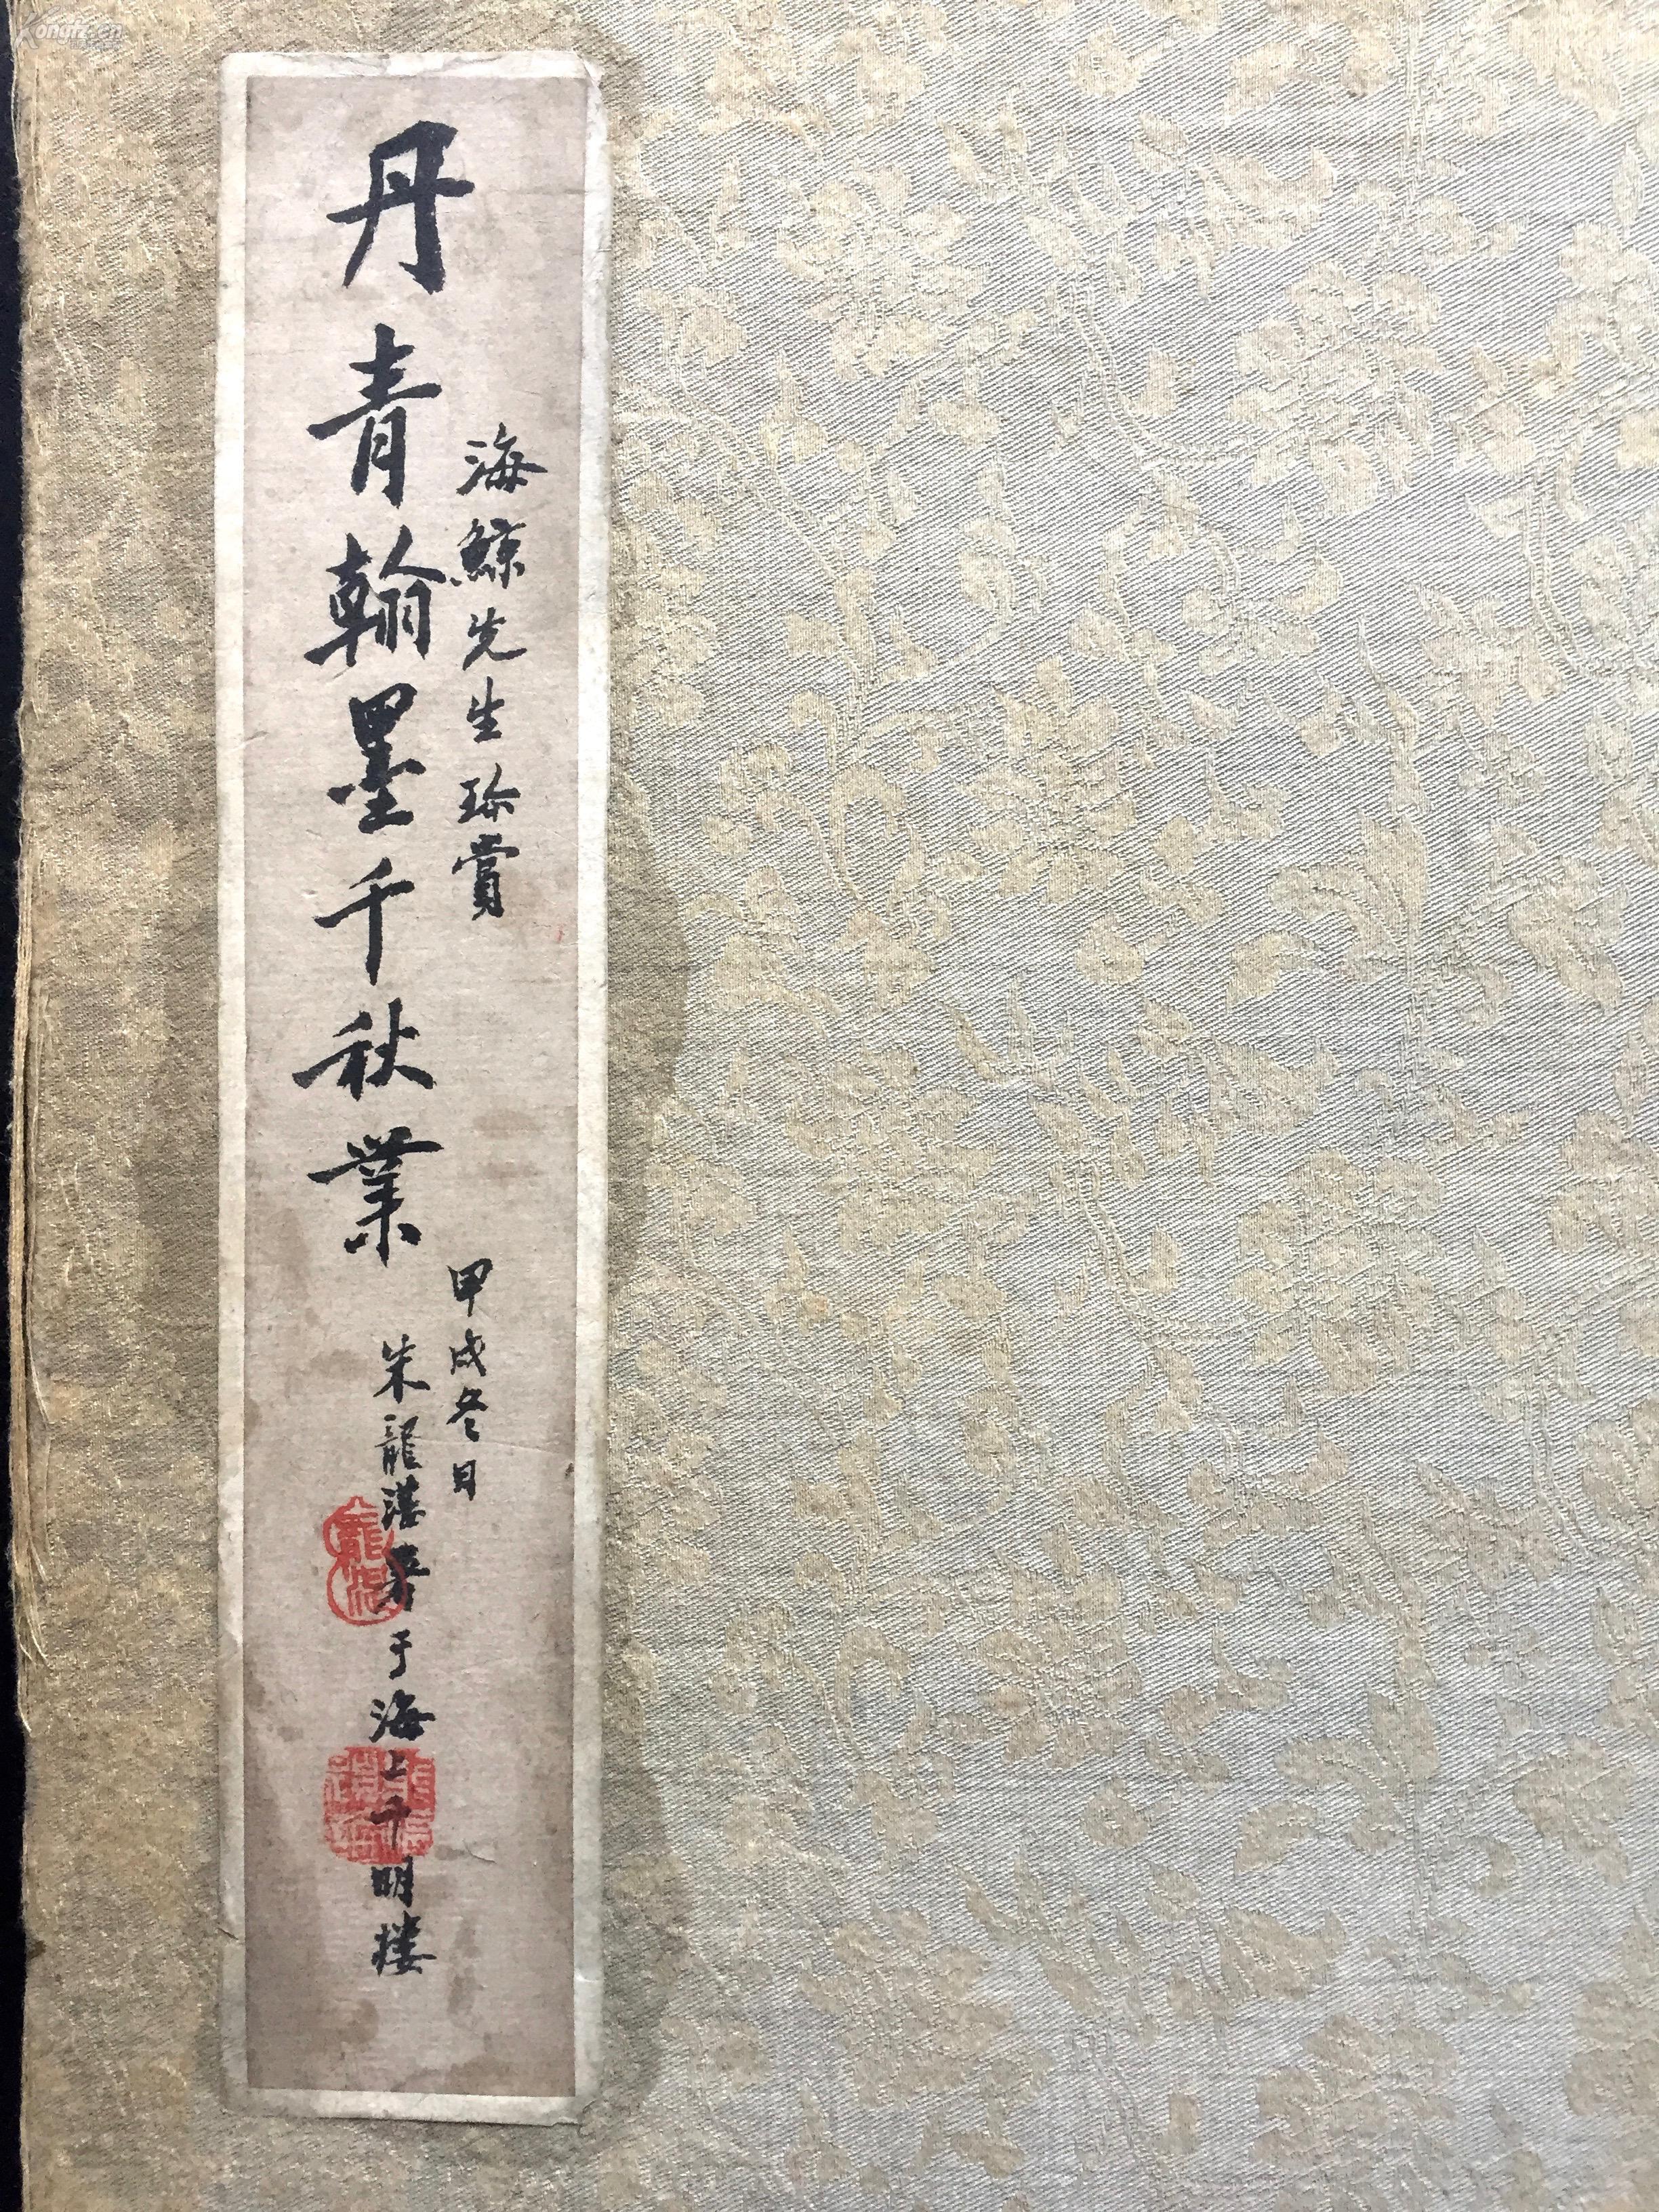 海鲸先生珍賞
丹青翰墨千秋業
甲戌冬日
朱龍湛署于海上千明楼
Kongfz.cn